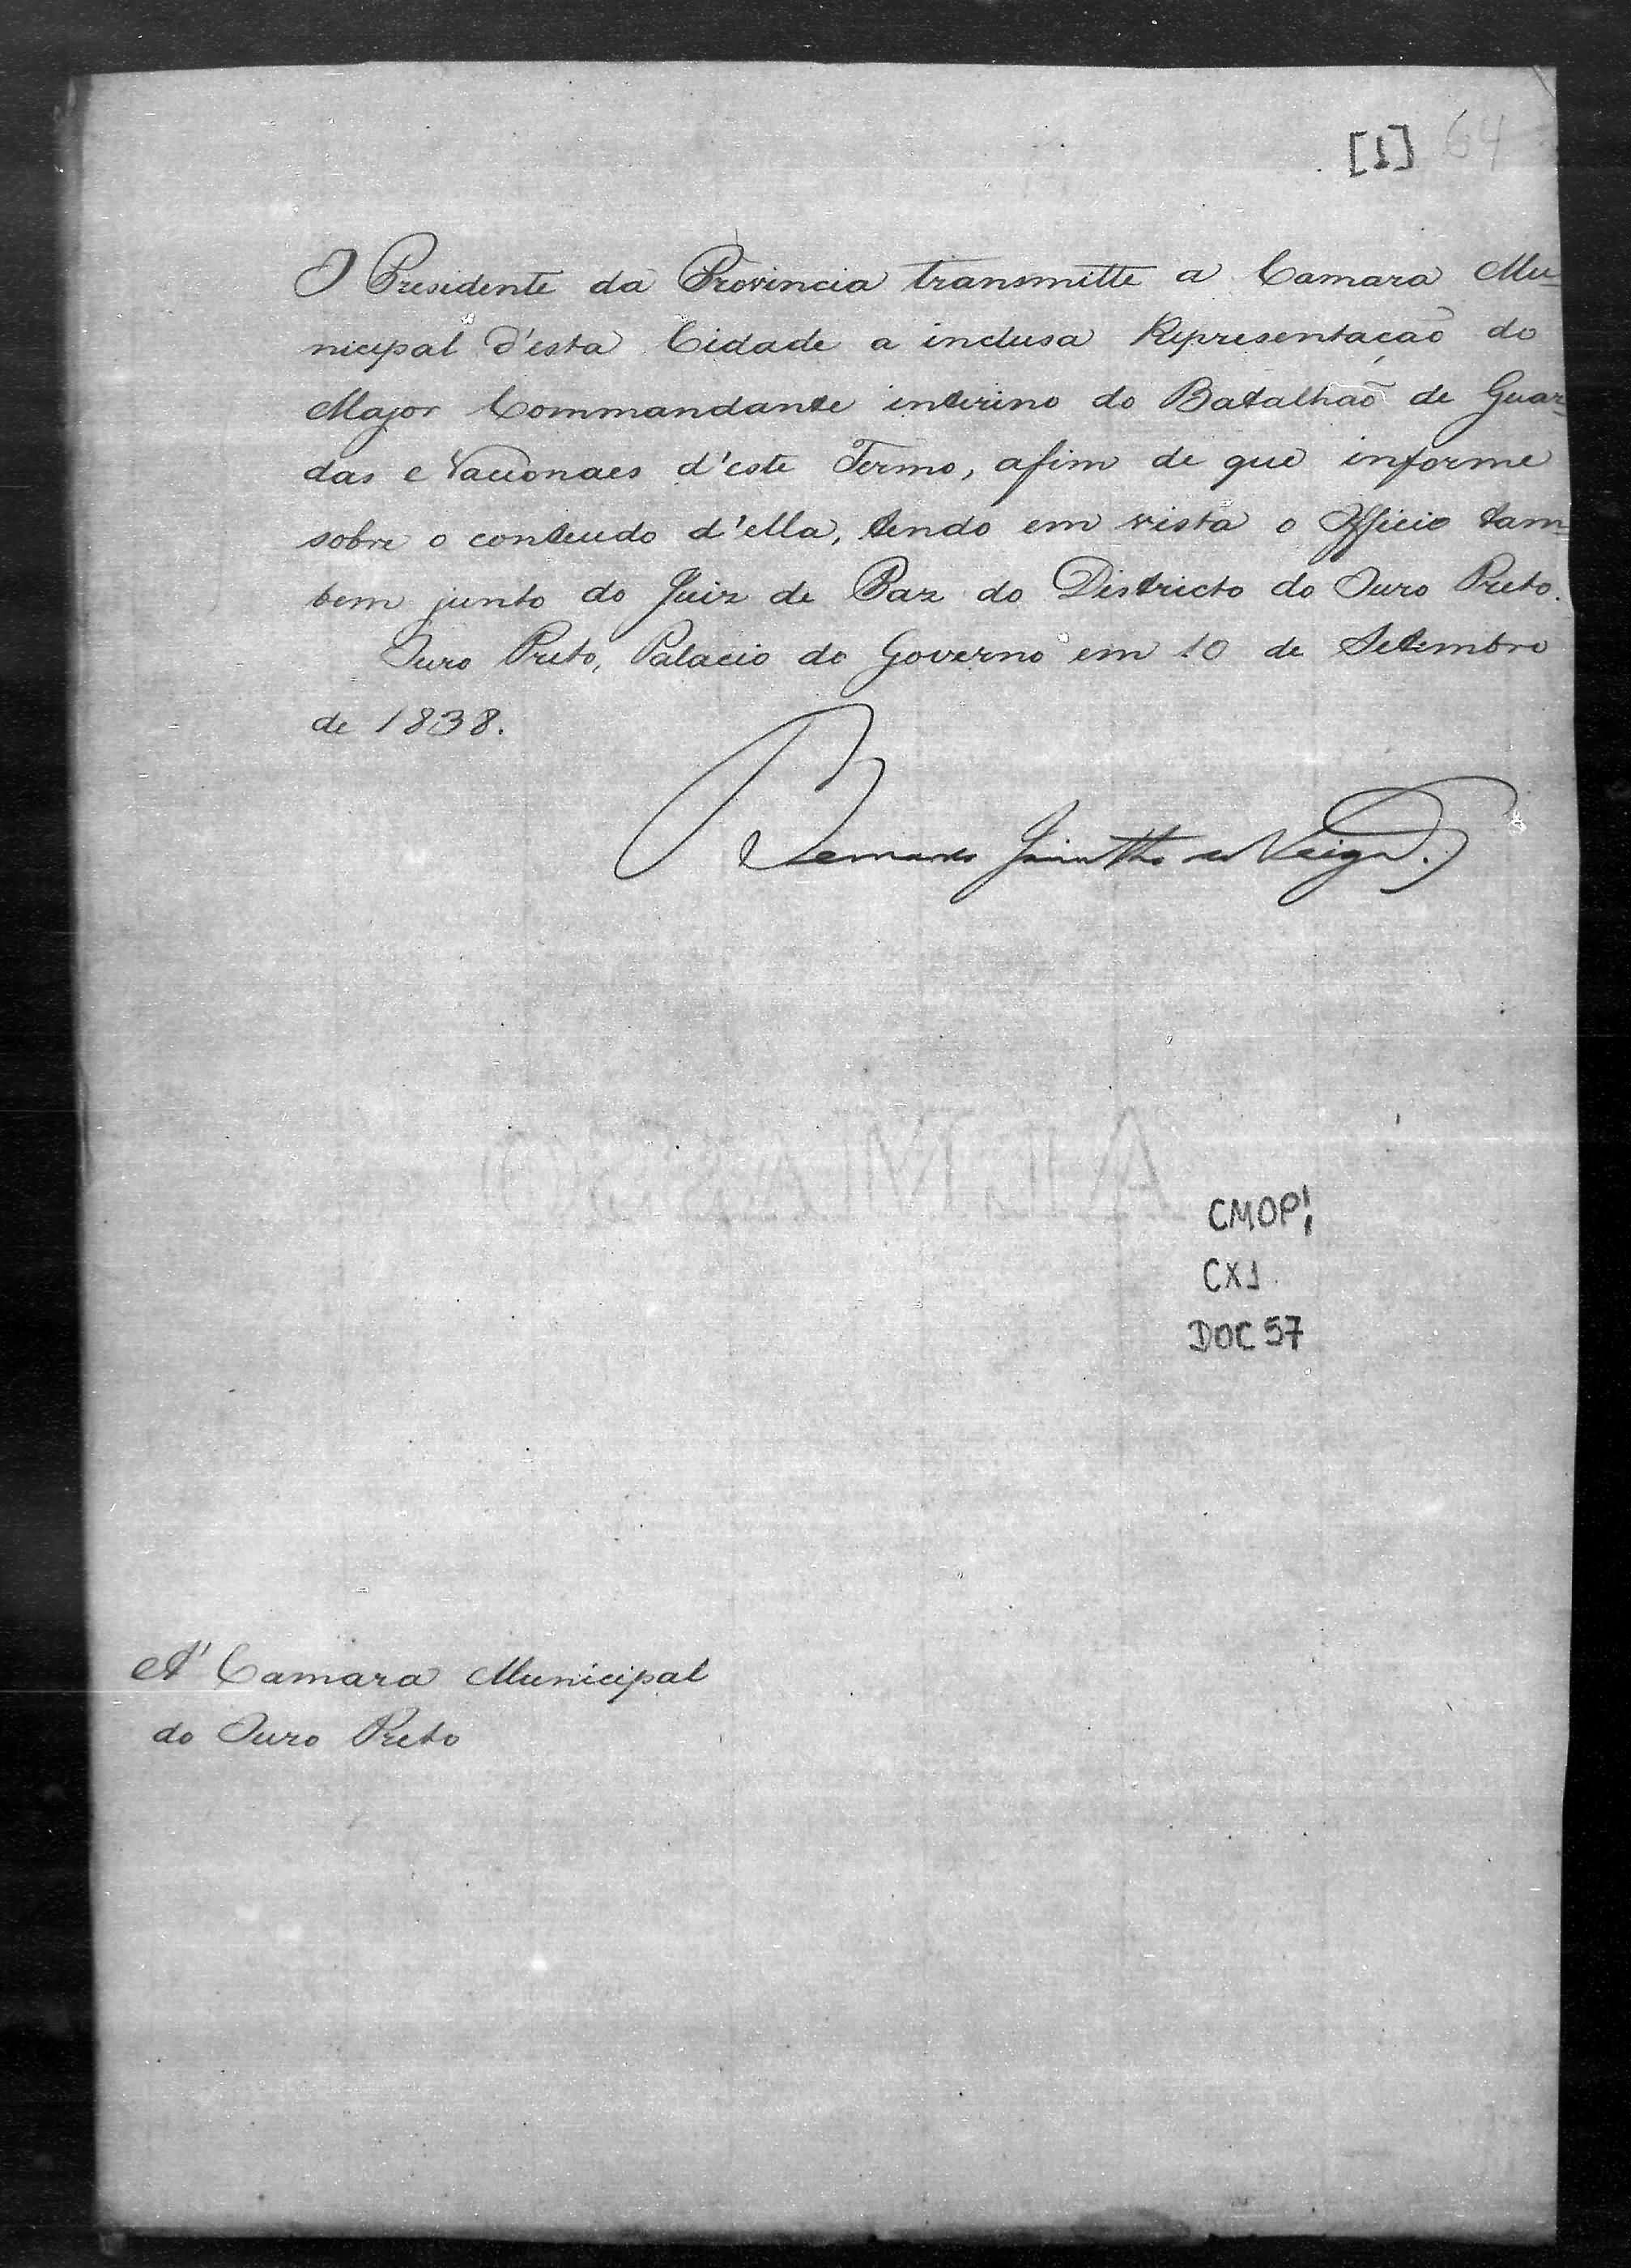 [1] 64
O Presidente da Provincia transmitte a Camara Mu-
nicipal d'esta Cidade a inclusa Representação do
Major Commandante interino do Batalhão de Guar-
das Nacionaes d'este Termo, afim de que informe
sobre o conteudo d'ella, tendo em vista o Officio tam-
bem junto do Juiz de Paz do Districto do Ouro Preto.
Ouro Preto, Palacio do Governo em 10 de Setembro
de 1838.
Bernardo Jacintho da Veiga.
ALMASSO
CMOP
CX1
DOC 57
A' Camara Municipal
do Ouro Preto